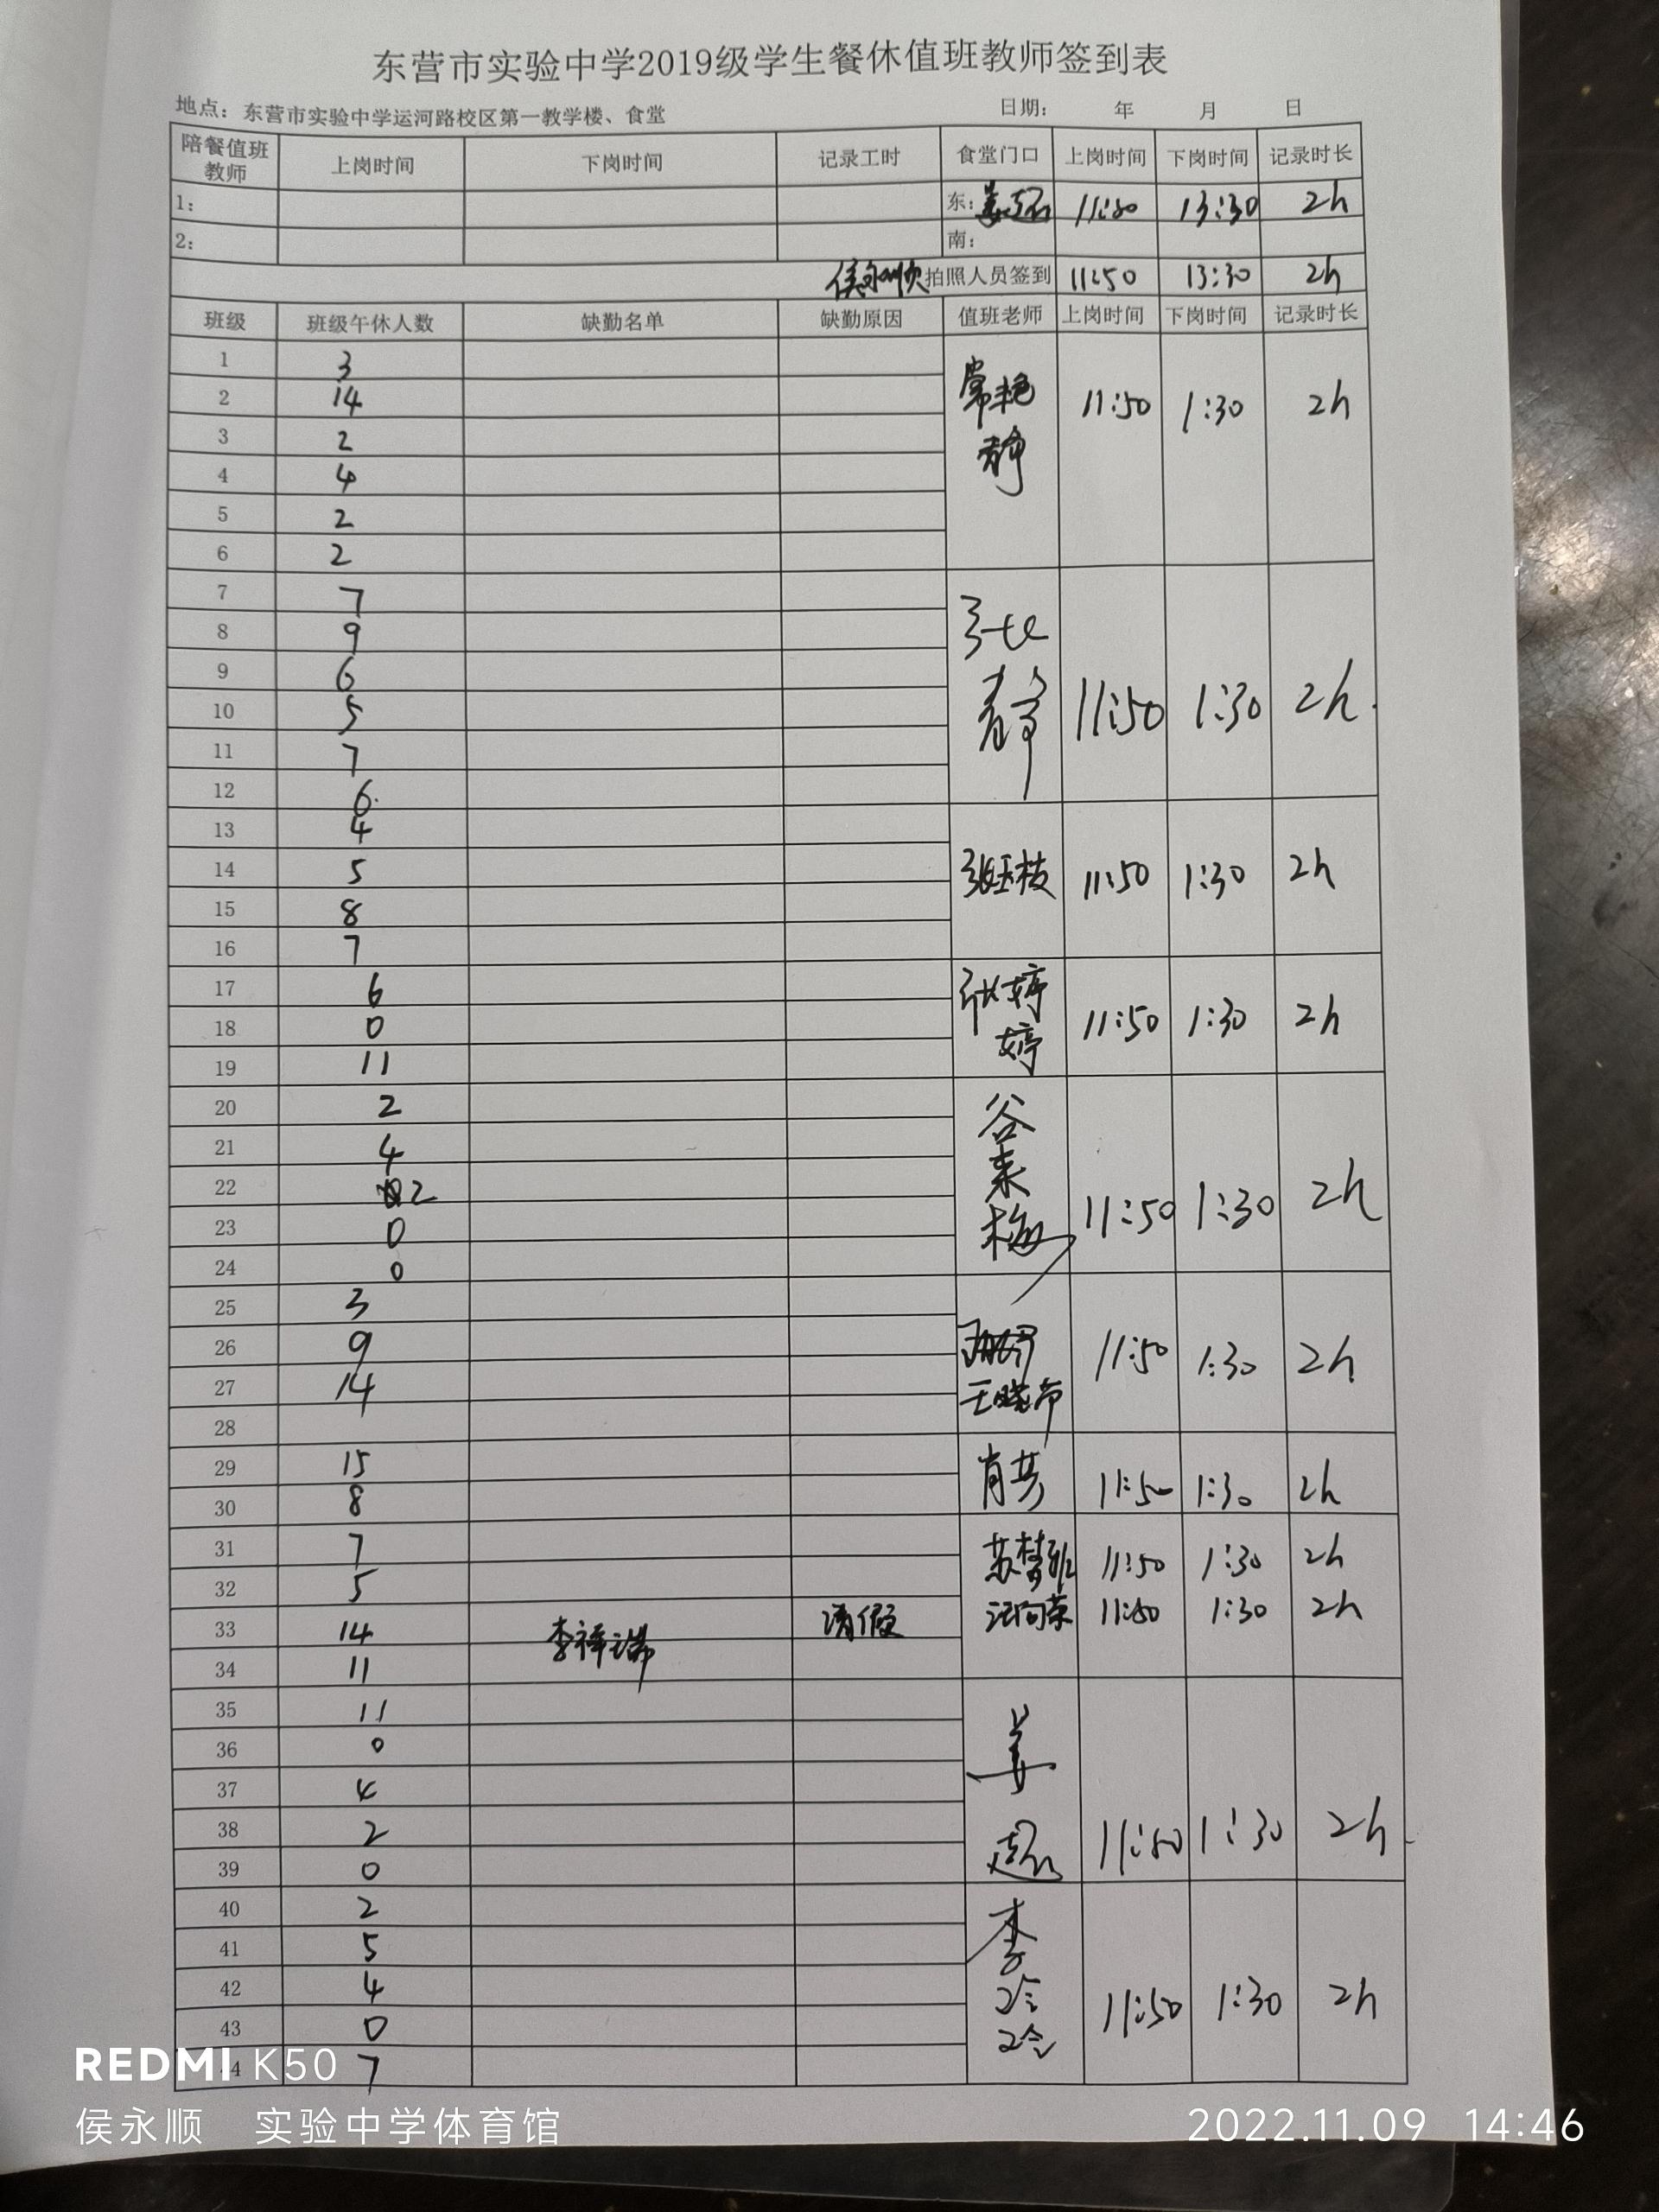 东营市实验中学2019级学生餐休值班教师签到表
地点：东营市实验中学运河路校区第一教学楼、食堂 日期： 年 月 日
陪餐值班教师 上岗时间 下岗时间 记录工时 食堂门口 上岗时间 下岗时间 记录时长
1： 东：姜超 11:50 13:30 2h
2： 南：
侯永顺 拍照人员签到 11:50 13:30 2h
班级 班级午休人数 缺勤名单 缺勤原因 值班老师 上岗时间 下岗时间 记录时长
1 3
2 14 常艳静 11:50 1:30 2h
3 2
4 4
5 2
6 2
7 7
8 9
9 6
10 5 静 11:50 1:30 2h
11 7
12 6
13 4
14 5 张玉枝 11:50 1:30 2h
15 8
16 7
17 6
18 0 张婷婷 11:50 1:30 2h
19 11
20 2
21 4
22 2 谷来梅 11:50 1:30 2h
23 0
24 0
25 3
26 9 11:50 1:30 2h
27 14 王晓
28
29 15
30 8 肖 11:50 1:30 2h
31 7 苏梦 11:50 1:30 2h
32 5
33 14 李祥瑞 请假 汪向荣 11:50 1:30 2h
34 11
35 11
36 0
37 4
38 2 姜超 11:50 1:30 2h
39 0
40 2
41 5
42 4 李玲玲 11:50 1:30 2h
43 0
44 7
REDMI K50
侯永顺 实验中学体育馆
2022.11.09 14:46